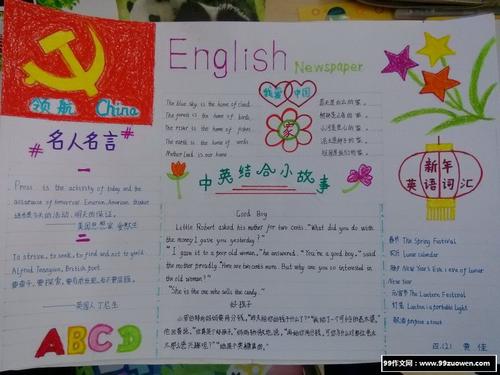 English
Newspaper
领航 China
# 名人名言 #
一
Press is the activity of today and the
assurance of tomorrow. Emerson, American, thinker
——美国思想家 爱默生
二
To strive, to seek, to find and not to yield
Alfred Tennyson, British poet
——英国人丁尼生
ABCD
我爱 中国
家
The blue sky is the home of cloud.
The forest is the home of birds.
The river is the home of fishes.
The earth is the home of seeds.
Motherland is our home.
蓝天是白云的家。
树林是小鸟的家。
小河是鱼儿的家。
泥土是种子的家。
祖国是我们的家。
中英结合小故事
Good Boy
Little Robert asked his mother for two cents. "What did you do with
the money I gave you yesterday?"
"I gave it to a poor old woman," he answered. "You're a good boy," said
the mother proudly. "Here are two cents more. But why are you so interested
in the old woman?"
"She is the one who sells the candy."
好孩子
新年
英语词汇
春节 The Spring Festival
农历 lunar calendar
除夕 New Year's Eve; eve of lunar
New Year
元宵节 The Lantern Festival
灯笼 Lantern: a portable light
敬酒 propose a toast
四.(2) 黄佳
99作文网:www.99zuowen.com